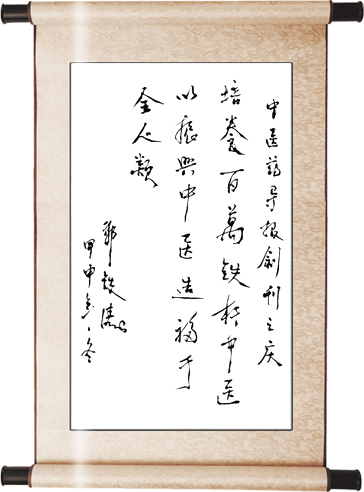 中医药导报创刊之庆
培养百萬铁杆中医
以振興中医造福于
全人類
邓铁涛
甲申年冬